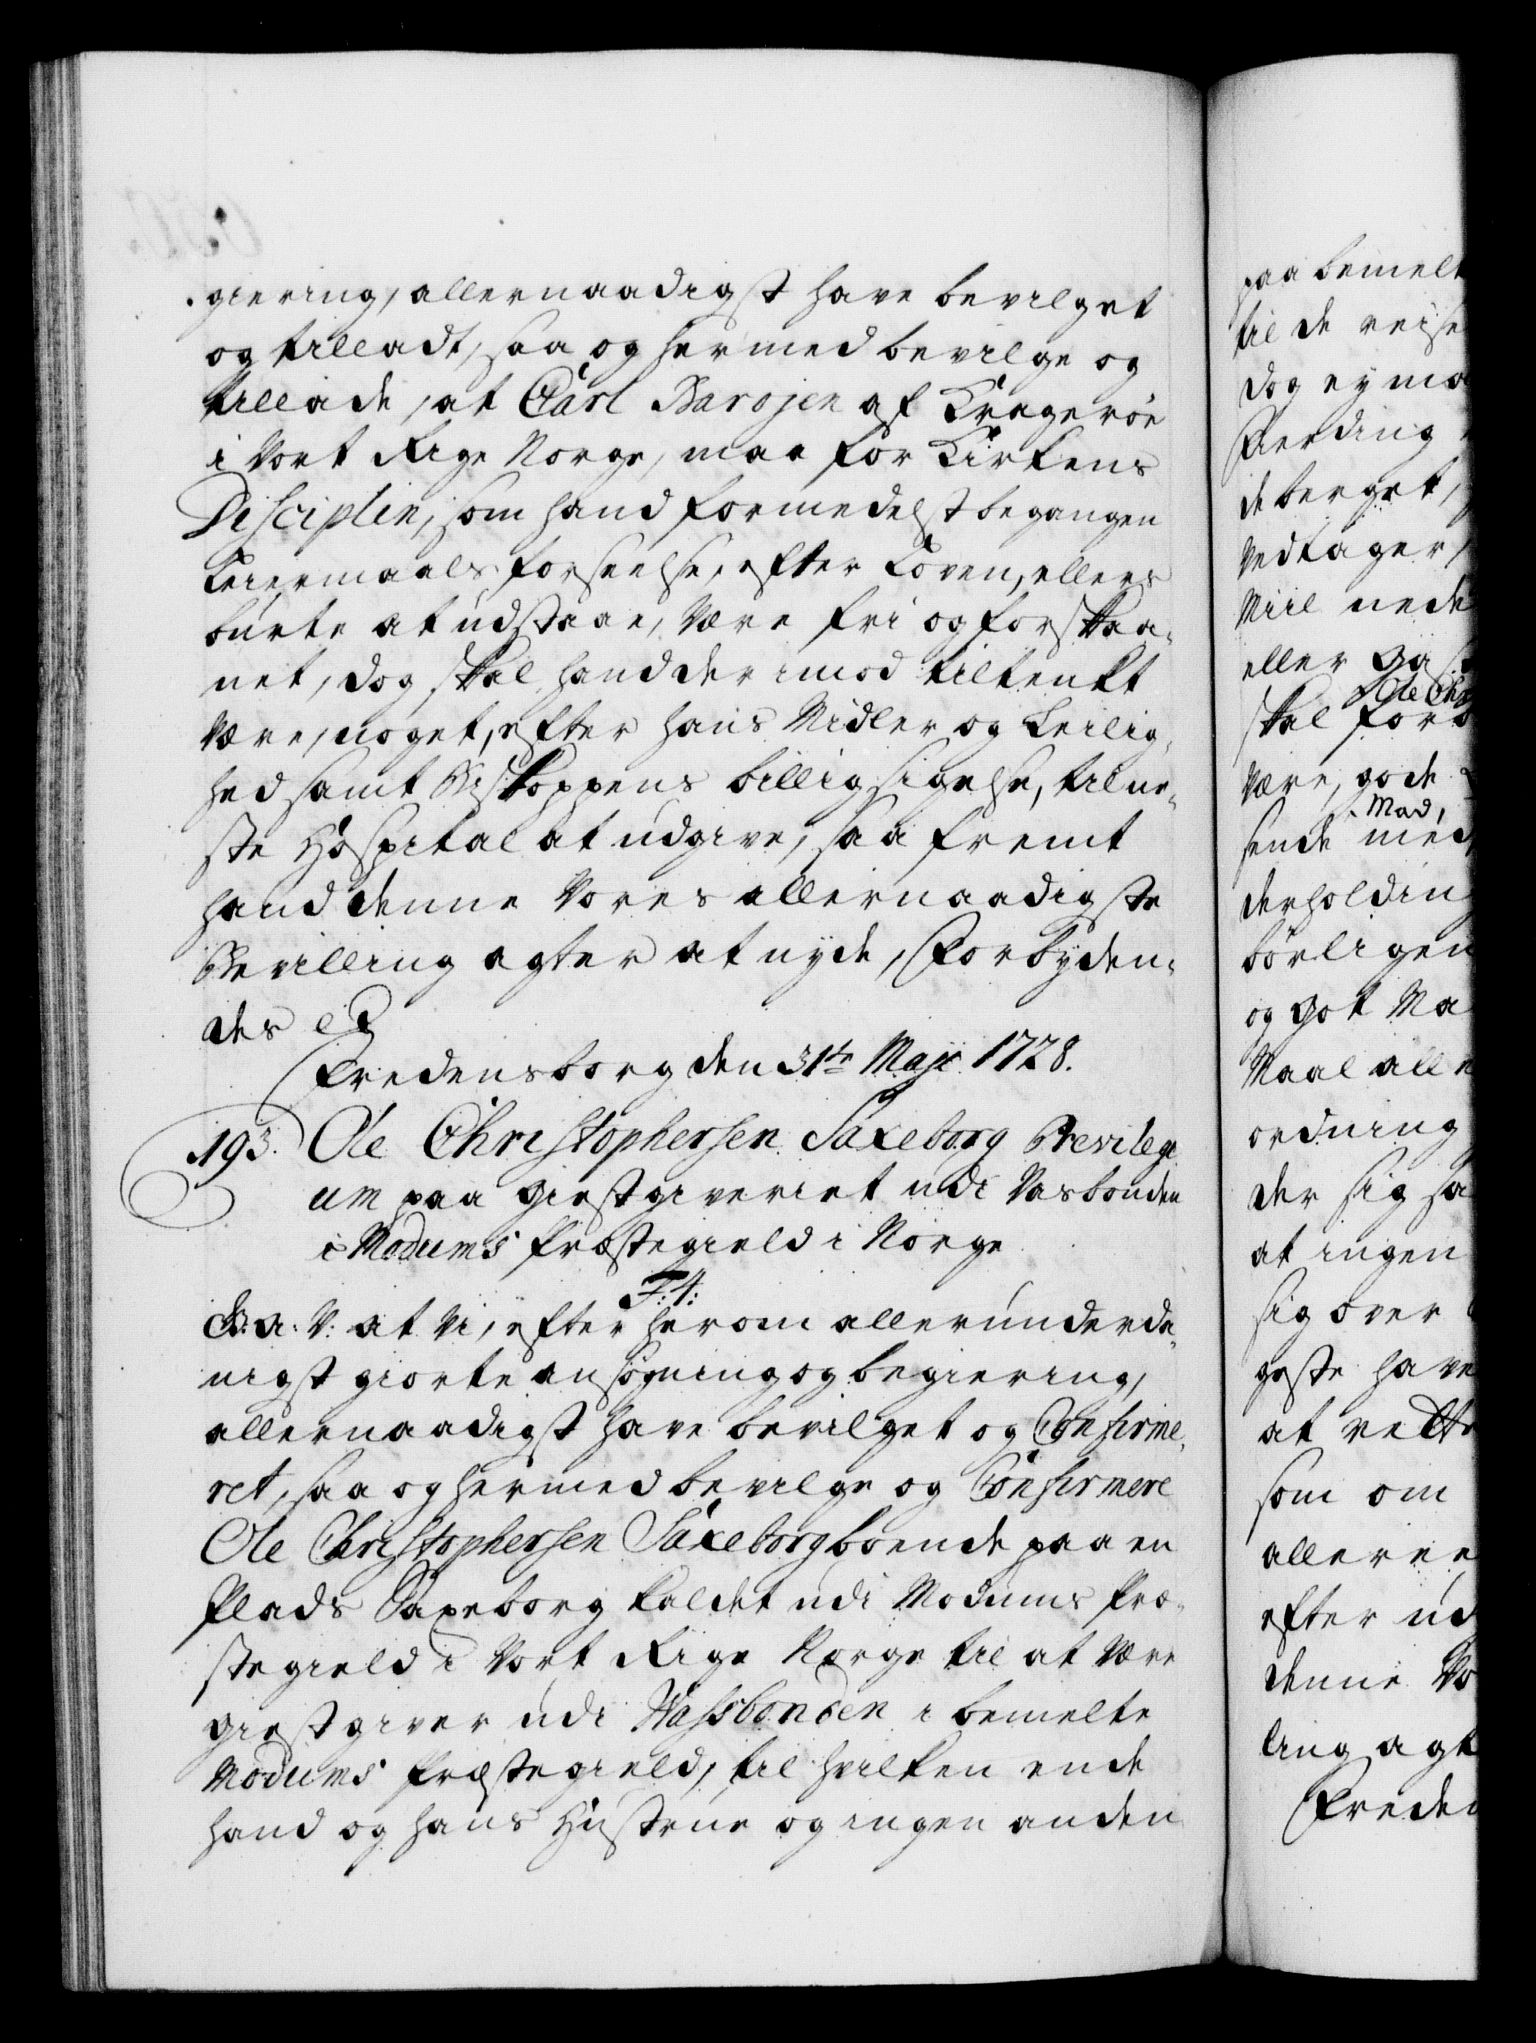 giering, allernaadigst have bevilget
og tilladt, saa og hermed bevilge og
tillade, at Carl Barsjen af Kragerøe
i Vort Rige Norge, maa for Kirkens
Disciplin, som hand formedelst begangen
Leiermaals forseelse, efter Loven, ellers
burte at udstaae, være fri og forskaa-
net, dog skal hand der imod tiltenkt
være, noget, efter hans Midler og Leilig-
hed samt Biskoppens billigsigelse, til ne-
ste Hospital at udgive, saa fremt
hand denne Vores allernaadigste
Bevilling agter at nyde, Forbyden-
des
Fredensborg den 31te Maji 1728.
193. Ole Christophersen Saxeborg Previlegi
um paa Giestgiveriet udi Vasbonden
i Modums Præstegield i Norge
F: 4:
G: A: V: at Vi, efter herom allerunderda-
nigst giorte ansøgning og begiering,
allernaadigst have bevilget og Confirme-
ret, saa og hermed bevilge og Confirmere
Ole Christophersen Saxeborg boende paa en
Plads Saxeborg kaldet udi Modums Præ-
stegield i Vort Rige Norge til at være
giestgiver udi Wassbonden i bemelte
Modums Præstegield, til hvilken ende
hand og hans Hustrue og ingen anden
paa bemelt
til de reise
dog ey maa
Fierding
de berget,
Vedtager,
Miil nede
eller Ga
Ole Chr
skal forb
være, gode
Mad,
sende med
derholding
børligen
og got Ma
Maal alle
ordning
der sig sa
at ingen
sig over
geste have
at rette
som om
alleree
efter ud
denne Vo
ling agt
Freden